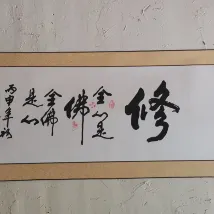 修
全心是
佛
全佛
是心
丙申年